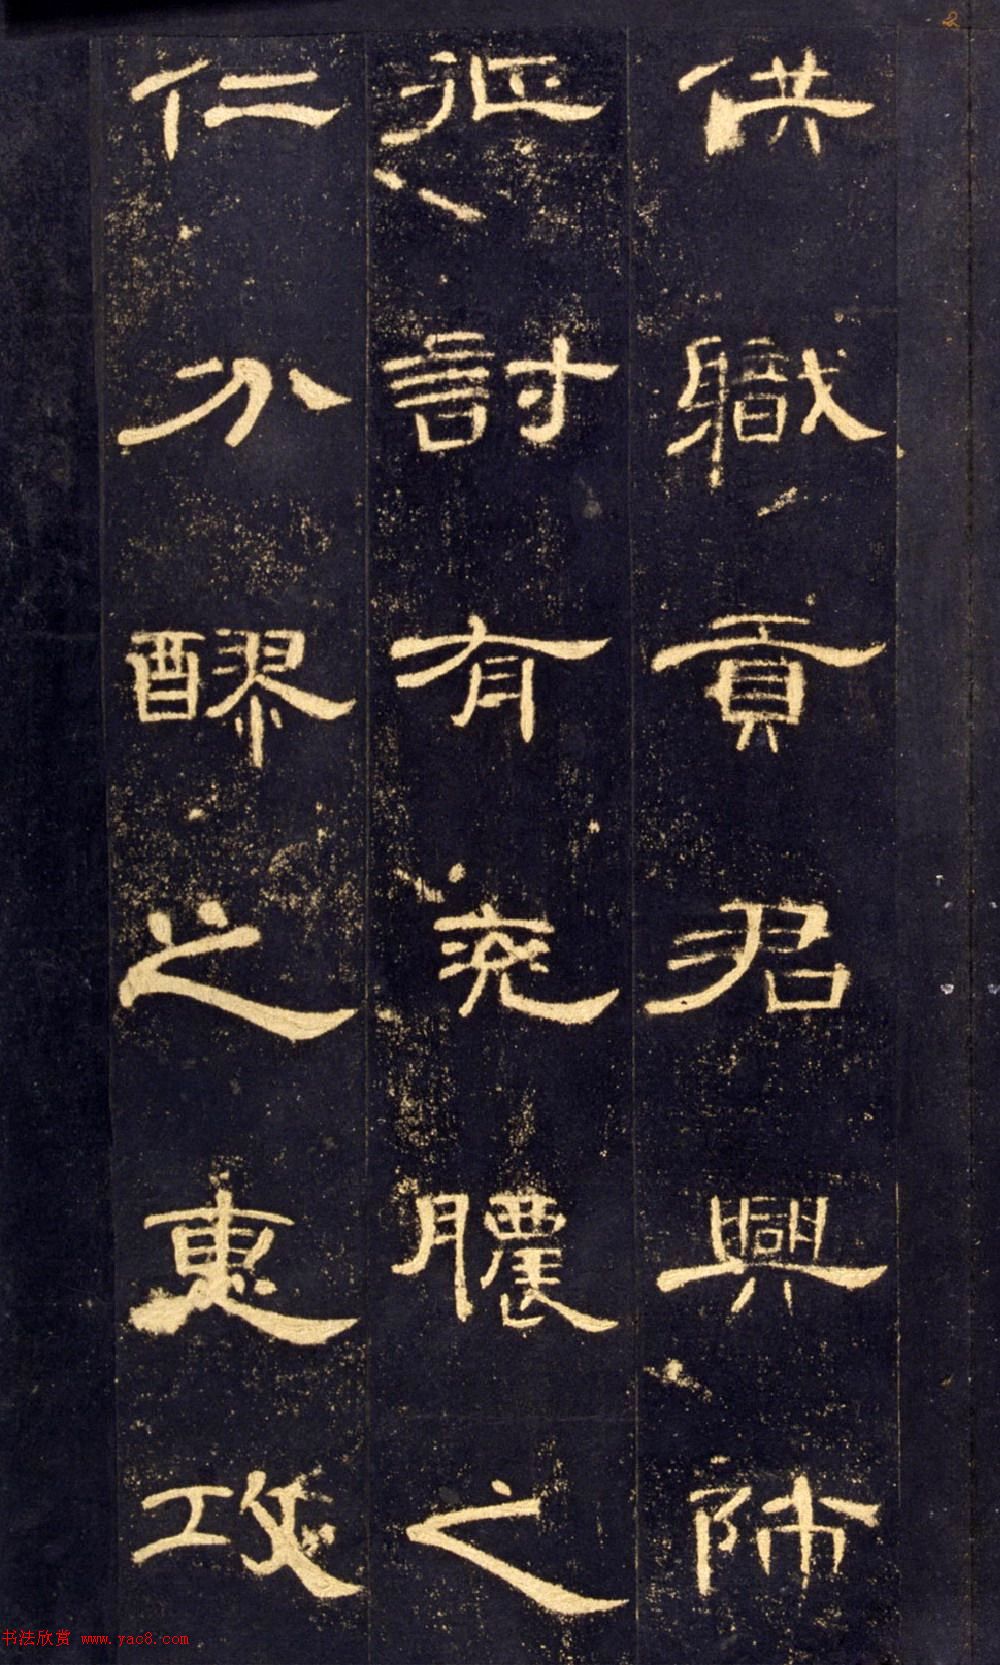 供職貢君興師
征討有兖膿之
仁分醪之惠攻
书法欣赏 www.yac8.com